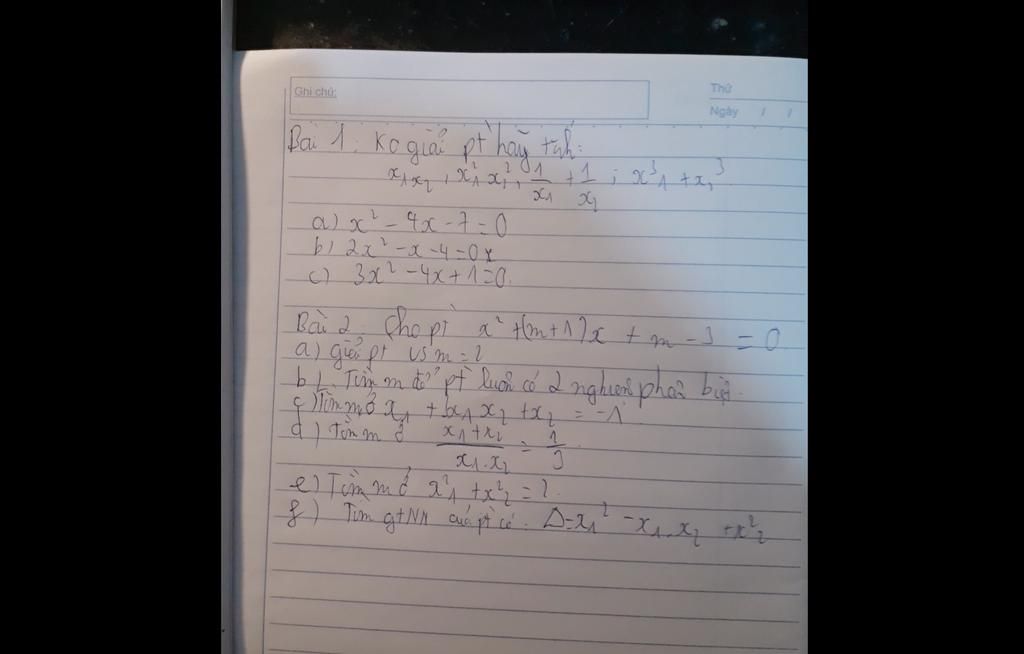 Ghi chú:
Thứ
Ngày / /
Bài 1: Ko giải pt hãy tính:
x₁x₂, x₁² x₂², 1/x₁ + 1/x₂ ; x³₁ + x₂³
a) x² - 4x - 7 = 0
b) 2x² - x - 4 = 0
c) 3x² - 4x + 1 = 0.
Bài 2: Cho pt x² + (m+1)x + m - 3 = 0
a) giải pt vs m = 2
b) Tìm m để pt luôn có 2 nghiệm phân biệt.
c) Tìm m x₁ + x₁x₂ + x₂ = -1
d) Tìm m (x₁+x₂)/(x₁.x₂) = 1/3
e) Tìm m x²₁ + x²₂ = 2.
f) Tìm gtNN của pt có. Δ = x₁² - x₁.x₂ + x²₂